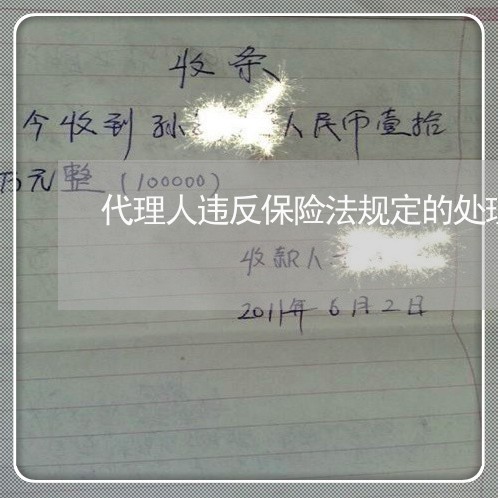 收条
今收到孙 人民币壹拾
万元整(100000)
代理人违反保险法规定的处理
收款人
2011年6月2日